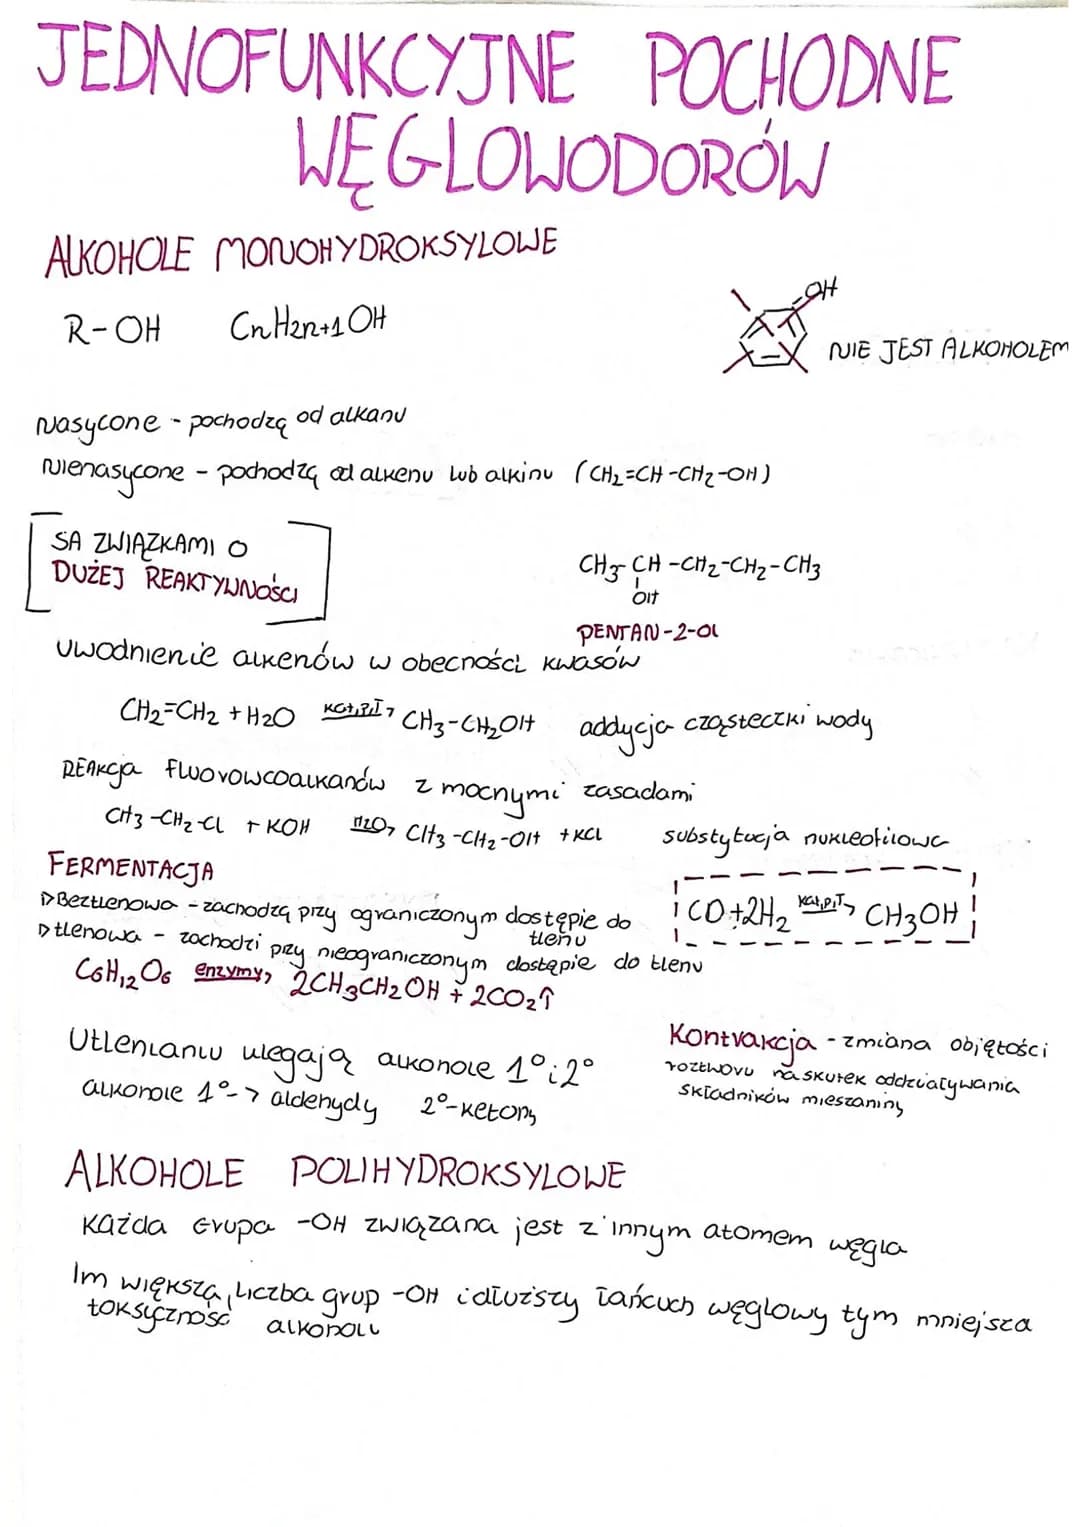 JEDNOFUNKCYJNE POCHODNE
WĘGLOWODORÓW
ALKOHOLE MONOHYDROKSYLOWE
R-OH CnH2n+1OH
OH
NIE JEST ALKOHOLEM
Nasycone - pochodzą od alkanu
Nienasycone - pochodzą od alkenu lub alkinu (CH2=CH-CH2-OH)
SĄ ZWIĄZKAMI O
DUŻEJ REAKTYWNOŚCI
CH3-CH-CH2-CH2-CH3
OH
PENTAN-2-OL
Uwodnienie alkenów w obecności kwasów
CH2=CH2 + H2O kat,p,T→ CH3-CH2OH addycja cząsteczki wody
REAKcja fluorowcoalkanów z mocnymi zasadami
CH3-CH2-Cl + KOH H2O→ CH3-CH2-OH + KCl substytucja nukleofilowa
FERMENTACJA
▷Beztlenowa - zachodzą przy ograniczonym dostępie do
tlenu
▷tlenowa - zachodzi przy nieograniczonym dostępie do tlenu
CO+2H2 kat,p,T→ CH3OH
C6H12O6 enzymy→ 2CH3CH2OH + 2CO2↑
Utlenianiu ulegają alkohole 1° i 2°
alkohole 1°-> aldehydy 2°-ketony
Kontrakcja - zmiana objętości
roztworu na skutek oddziaływania
składników mieszaniny
ALKOHOLE POLIHYDROKSYLOWE
Każda Grupa -OH związana jest z innym atomem węgla
Im większa liczba grup -OH i dłuższy łańcuch węglowy tym mniejsza
toksyczność alkoholu